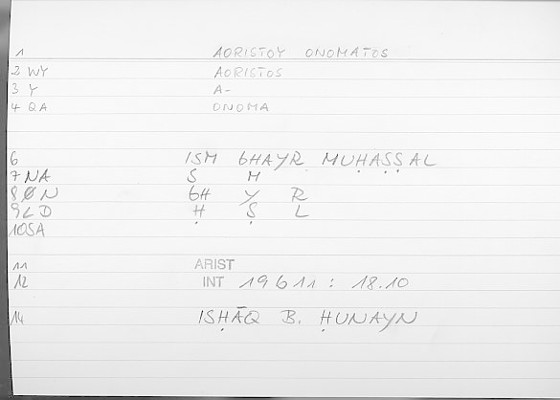 1 AORISTOY ONOMATOS
2 WY AORISTOS
3 Y A-
4 QA ONOMA
6 ISM GHAYR MUḤAṢṢAL
7 NA S M
8 ØN GH Y R
9 LD Ḥ Ṣ L
10 SA
11 ARIST
12 INT 19611 : 18.10
14 ISḤĀQ B. ḤUNAYN